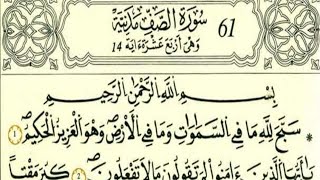 سُورَةُ الصَّفِّ مَدَنِيَّةٌ 61
وَهِيَ أَرْبَعَ عَشْرَةَ آيَةً 14
بِسْمِ اللَّهِ الرَّحْمَٰنِ الرَّحِيمِ
سَبَّحَ لِلَّهِ مَا فِي السَّمَوَاتِ وَمَا فِي الْأَرْضِ وَهُوَ الْعَزِيزُ الْحَكِيمُ ١
يَا أَيُّهَا الَّذِينَ آمَنُوا لِمَ تَقُولُونَ مَا لَا تَفْعَلُونَ ٢ كَبُرَ مَقْتًا